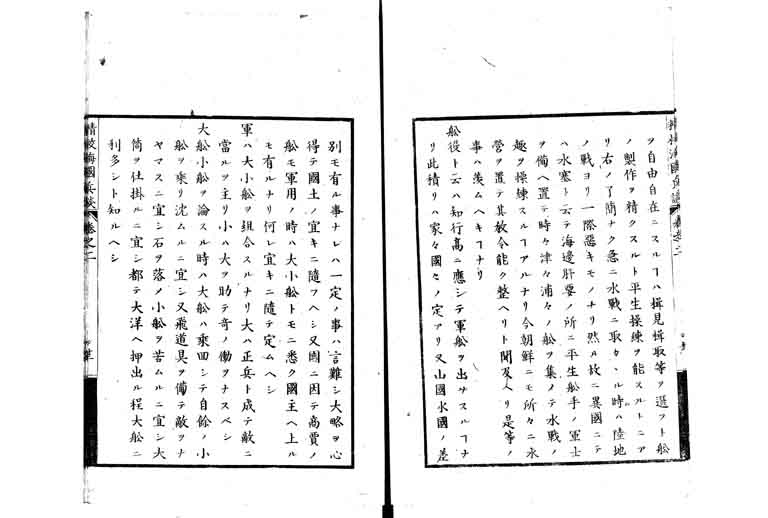 ヲ自由自在ニスルヿハ揖見揖取等ヲ選フト舩
ノ製作ヲ精クスルト平生操練ヲ能スルトニア
リ右ノ了簡ナク急ニ水戰ニ取カヽル時ハ陸地
ノ戰ヨリ一際惡キモノナリ然ル故ニ異國ニテ
ハ水塞ト云テ海邊肝要ノ所ニ平生舩手ノ軍士
ヲ備ヘ置テ時々津々浦々ノ舩ヲ集メテ水戰ノ
趣ヲ操練スルヿアルナリ今朝鮮ニモ所々ニ水
營ヲ置テ其教令能ク整ヘリト聞及ヘリ是等ノ
事ハ羨ムヘキヿナリ
舩役ト云ハ知行高ニ應シテ軍舩ヲ出サスルヿナ
リ此積リハ家々國々ノ定アリ又山國水國ノ差
別モ有ル事ナレハ一定ノ事ハ言難シ大略ヲ心
得テ國土ノ宜キニ隨フヘシ又國ニ因テ商賈ノ
舩モ軍用ノ時ハ大小舩トモニ悉ク國主ヘ上ル
モ有ルナリ何レ宜キニ隨テ定ムヘシ
軍ハ大小舩ヲ組合スルナリ大ハ正兵ト成テ敵ニ
當ルヲ主リ小ハ大ヲ助テ奇ノ働ヲナスベシ
大舩小舩ヲ論スル時ハ大舩ハ乘四シテ自餘ノ小
舩ヲ乘リ沈ムルニ宜シ又飛道具ヲ備テ敵ヲナ
ヤマスニ宜シ石ヲ落メ小舩ヲ苦ムルニ宜シ大
筒ヲ仕掛ルニ宜シ都テ大洋ヘ押出ル程大舩ニ
利多シト知ルヘシ
精校海國兵談 卷之二